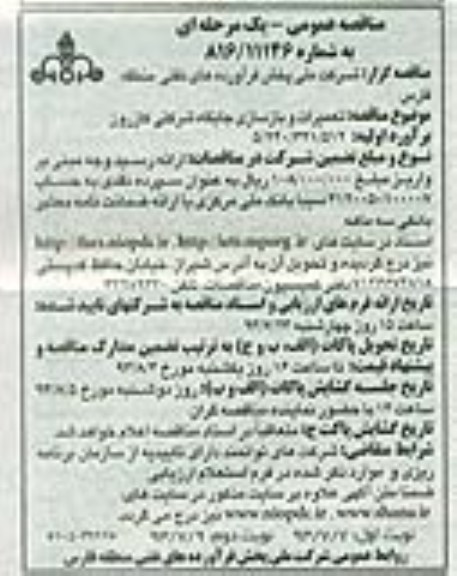 مناقصه عمومی - یک مرحله ای
به شماره ۸۱۶/۱۱۱۴۶
مناقصه گزار: شرکت ملی پخش فرآورده های نفتی منطقه
فارس
موضوع مناقصه: تعمیرات و بازسازی جایگاه شرکتی کازرون
برآورد اولیه:
نوع و مبلغ تضمین شرکت در مناقصات: ارائه رسید وجه مبنی بر
واریز مبلغ ریال به عنوان سپرده نقدی به حساب
سیبا بانک ملی مرکزی یا ارائه ضمانت نامه معتبر
بانکی سه ماهه
اسناد در سایت های http://iets.mporg.ir
نیز درج گردیده و تحویل آن به آدرس شیراز، خیابان حافظ
دفتر کمیسیون مناقصات تلفن
تاریخ ارائه فرم های ارزیابی و اسناد مناقصه به شرکتهای تایید شده:
ساعت ۱۵ روز چهارشنبه
تاریخ تحویل پاکات (الف، ب و ج) به ترتیب تضمین مدارک مناقصه و
پیشنهاد قیمت: تا ساعت ۱۴ روز یکشنبه مورخ ۹۳/۸/۴
تاریخ جلسه گشایش پاکات (الف و ب): روز دوشنبه مورخ ۹۳/۸/۵
ساعت با حضور نماینده مناقصه گران
تاریخ گشایش پاکت ج: متعاقبا بر اسناد مناقصه اعلام خواهد شد
شرایط متقاضی: شرکت های توانمند دارای تاییدیه از سازمان برنامه
ریزی و موارد ذکر شده در فرم استعلام ارزیابی
ضمنا متن آگهی علاوه بر سایت مذکور در سایت های
www.niopdc.ir , www.shana.ir نیز درج می گردد.
نوبت اول: ۹۳/۷/۷ نوبت دوم: ۹۳/۷/۹
روابط عمومی شرکت ملی پخش فرآورده های نفتی منطقه فارس